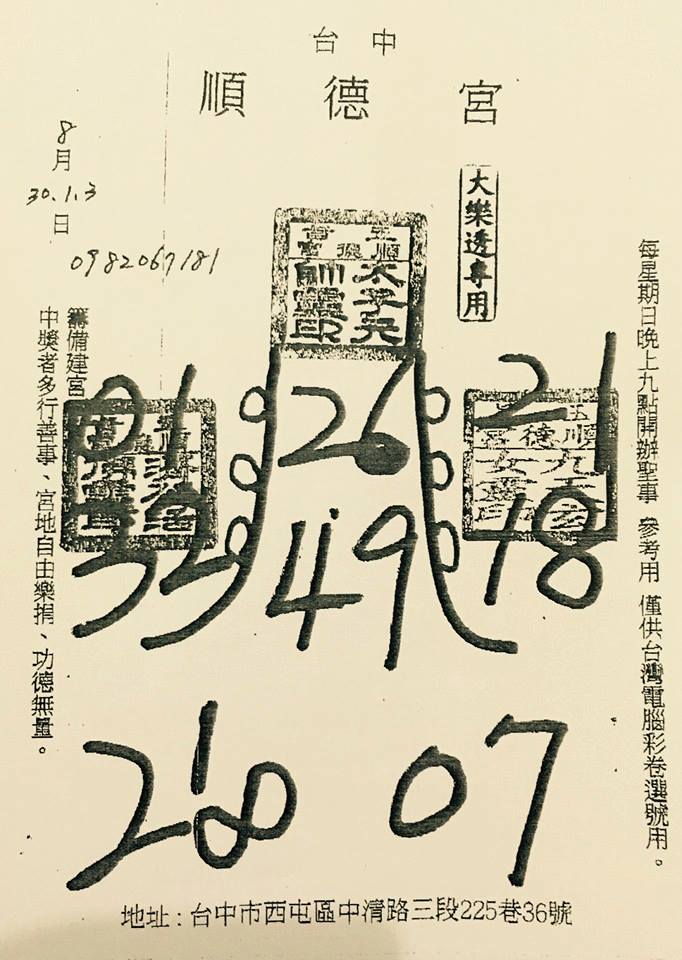 台中
順德宮
8月30.1.3日
0982067181
大樂透專用
每星期日晚上九點開辦聖事 參考用 僅供台灣電腦彩卷選號用。
籌備建宮
中獎者多行善事、宮地自由樂捐、功德無量。
01 26 21
32 49 18
28 07
地址:台中市西屯區中清路三段225巷36號